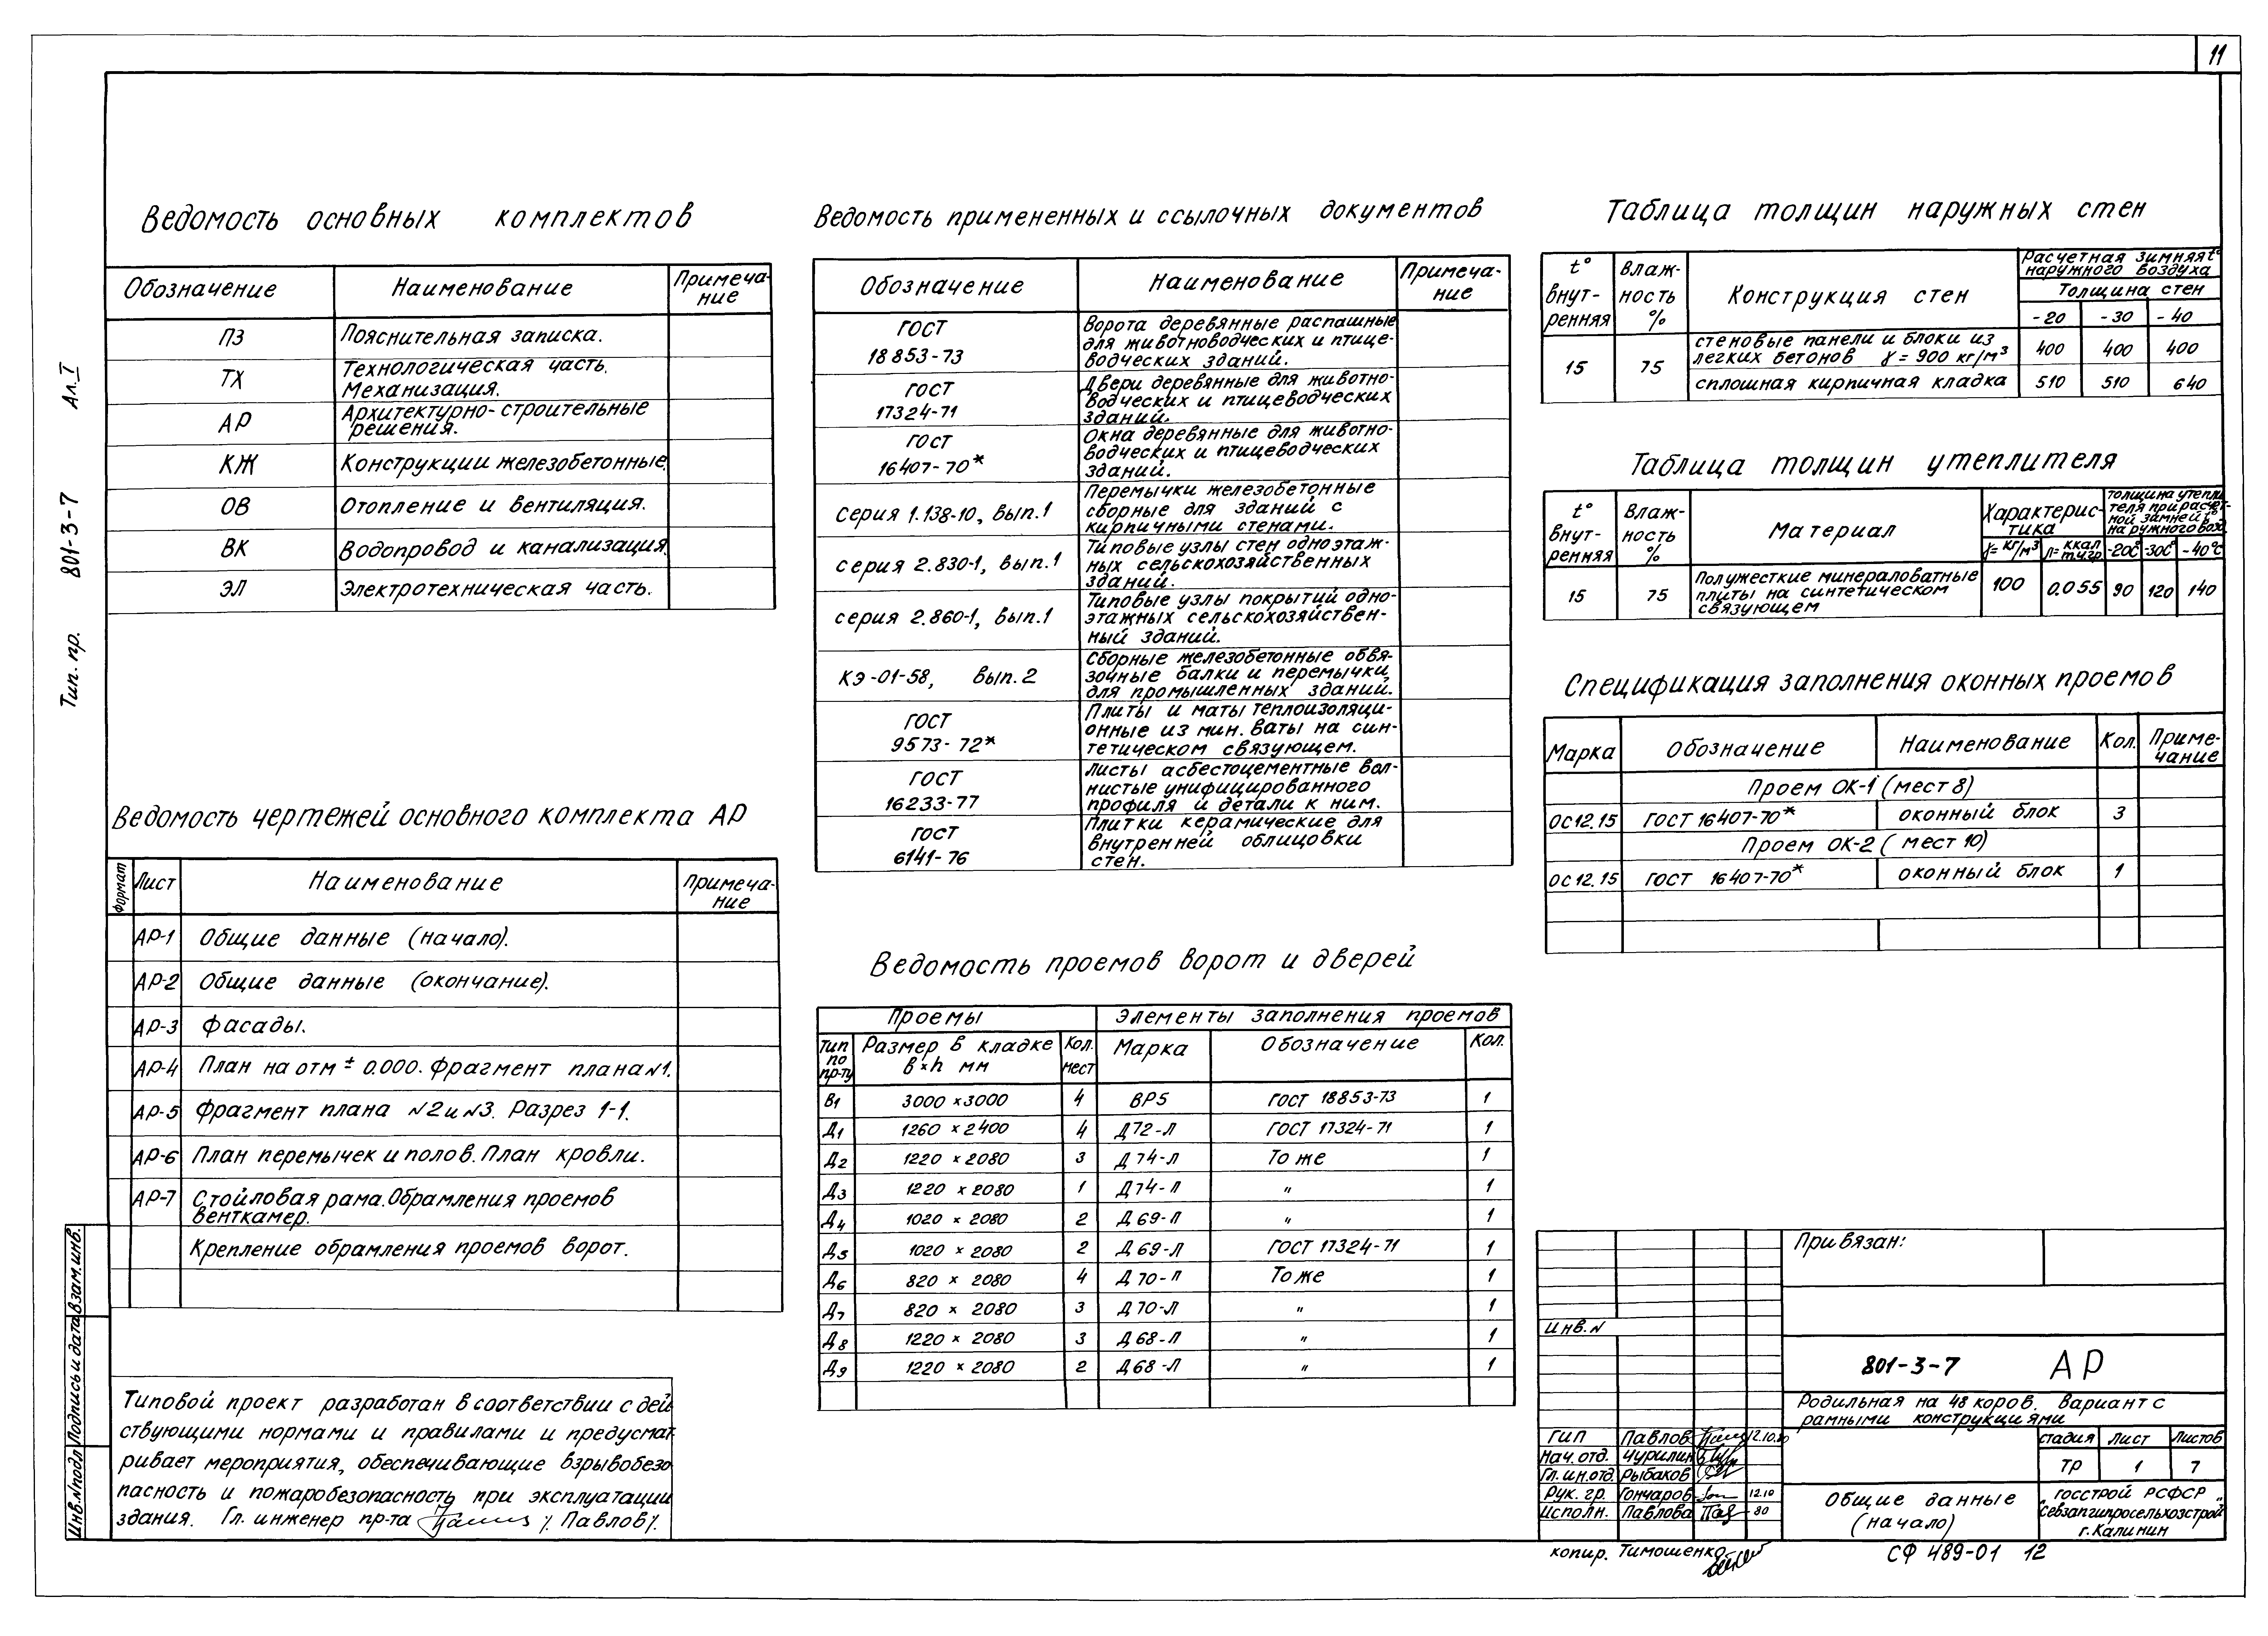 11
Ал. I
Тип. пр. 801-3-7
Ведомость основных комплектов
Обозначение Наименование Примеча-
ние
ПЗ Пояснительная записка.
ТХ Технологическая часть.
Механизация.
АР Архитектурно-строительные
решения.
КЖ Конструкции железобетонные.
ОВ Отопление и вентиляция.
ВК Водопровод и канализация.
ЭЛ Электротехническая часть.
Ведомость чертежей основного комплекта АР
Формат Лист Наименование Примеча-
ние
АР-1 Общие данные (начало).
АР-2 Общие данные (окончание).
АР-3 Фасады.
АР-4 План на отм ± 0.000. Фрагмент плана N1.
АР-5 Фрагмент плана N2 и N3. Разрез 1-1.
АР-6 План перемычек и полов. План кровли.
АР-7 Стойловая рама. Обрамления проемов
венткамер.
Крепление обрамления проемов ворот.
Типовой проект разработан в соответствии с дей
ствующими нормами и правилами и предусмат-
ривает мероприятия, обеспечивающие взрывобезо
пасность и пожаробезопасность при эксплуатации
здания. Гл. инженер пр-та /. Павлов/.
Инв. N подл Подпись и дата Взам. инв.
Ведомость примененных и ссылочных документов
Обозначение Наименование Примеча-
ние
ГОСТ
18853-73
Ворота деревянные распашные
для животноводческих и птице-
водческих зданий.
ГОСТ
17324-71
Двери деревянные для животно-
водческих и птицеводческих
зданий.
ГОСТ
16407-70*
Окна деревянные для животно-
водческих и птицеводческих
зданий.
Серия 1.138-10, вып.1
Перемычки железобетонные
сборные для зданий с
кирпичными стенами.
серия 2.830-1, вып.1
Типовые узлы стен одноэтаж-
ных сельскохозяйственных
зданий.
серия 2.860-1, вып.1
Типовые узлы покрытий одно-
этажных сельскохозяйствен-
ный зданий.
КЭ-01-58, вып. 2
Сборные железобетонные обвя-
зочные балки и перемычки
для промышленных зданий.
ГОСТ
9573-72*
Плиты и маты теплоизоляци-
онные из мин. ваты на син-
тетическом связующем.
ГОСТ
16233-77
Листы асбестоцементные вол-
нистые унифицированного
профиля и детали к ним.
ГОСТ
6141-76
Плитки керамические для
внутренней облицовки
стен.
Ведомость проемов ворот и дверей
Проемы Элементы заполнения проемов
Тип
по
пр-ту
Размер в кладке
в×h мм
Кол.
мест
Марка Обозначение Кол.
В1 3000 × 3000 4 ВР5 ГОСТ 18853-73 1
Д1 1260 × 2400 4 Д72-Л ГОСТ 17324-71 1
Д2 1220 × 2080 3 Д74-Л То же 1
Д3 1220 × 2080 1 Д74-П " 1
Д4 1020 × 2080 2 Д69-П " 1
Д5 1020 × 2080 2 Д69-Л ГОСТ 17324-71 1
Д6 820 × 2080 4 Д70-П То же 1
Д7 820 × 2080 3 Д70-Л " 1
Д8 1220 × 2080 3 Д68-П " 1
Д9 1220 × 2080 2 Д68-Л " 1
Таблица толщин наружных стен
t°
внут-
ренняя
Влаж-
ность
%
Конструкция стен
Расчетная зимняя t°
наружного воздуха
Толщина стен
-20 -30 -40
15 75
стеновые панели и блоки из
легких бетонов γ = 900 кг/м³ 400 400 400
сплошная кирпичная кладка 510 510 640
Таблица толщин утеплителя
t°
внут-
ренняя
Влаж-
ность
%
Материал
Характерис-
тика
толщина утепли
теля при расчет-
ной зимней t°
наружного возд.
γ= кг/м³ λ= ккал -20с° -30с° -40°с
15 75
Полужесткие минераловатные
плиты на синтетическом
связующем
100 0.055 90 120 140
Спецификация заполнения оконных проемов
Марка Обозначение Наименование Кол. Приме-
чание
Проем ОК-1 (мест 8)
ОС12.15 ГОСТ 16407-70* оконный блок 3
Проем ОК-2 (мест 10)
ОС12.15 ГОСТ 16407-70* оконный блок 1
Привязан:
Инв. N
801-3-7 АР
Родильная на 48 коров. Вариант с
рамными конструкциями
ГИП Павлов 12.10.80
Нач. отд. Чурилин
Гл. ин. отд. Рыбаков
Рук. гр. Гончаров 12.10
Исполн. Павлова 80
стадия Лист Листов
ТР 1 7
Общие данные
(начало)
Госстрой РСФСР
"Севзапгипросельхозстрой"
г. Калинин
копир. Тимошенко
СФ 489-01 12